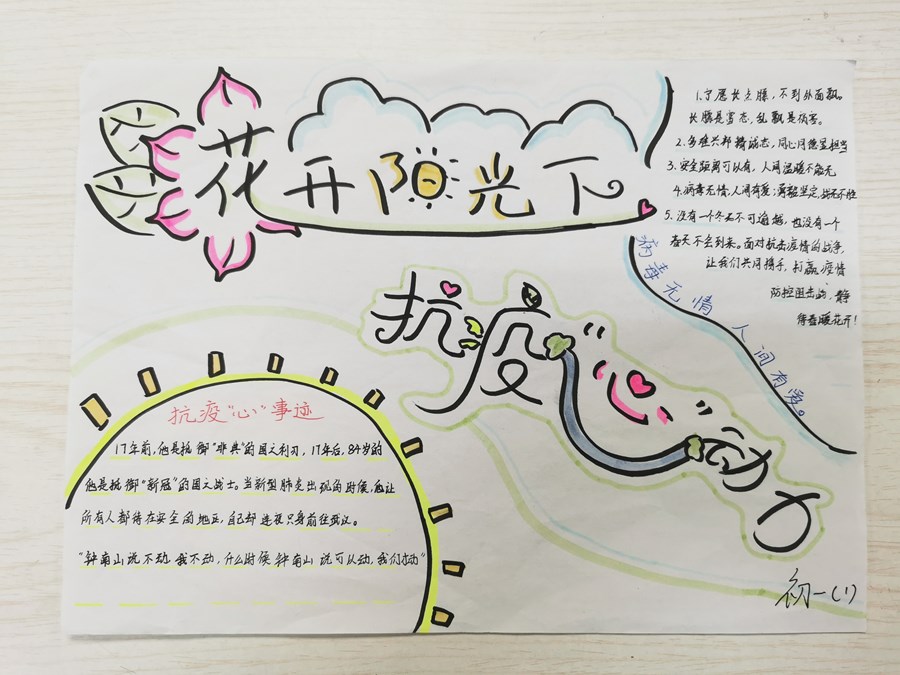 花开阳光下
1.宁愿长点膘，不到外面飘。
长膘是富态，乱飘是祸害。
2.多难兴邦精诚志，同心同德显担当
3.安全距离可以有，人间温暖不能无
4.病毒无情，人间有爱；勇毅坚定，战无不胜
5.没有一个冬天不可逾越，也没有一个
春天不会到来。面对抗击疫情的战争，
让我们共同携手，打赢疫情
防控阻击战，静
待春暖花开！
病毒无情 人间有爱。
抗疫“心”动力
抗疫“心”事迹
17年前，他是抵御“非典”的国之利刃，17年后，84岁的
他是抵御“新冠”的国之战士。当新型肺炎出现的时候，他让
所有人都待在安全的地区，自己却连夜只身前往武汉。
“钟南山说不动，我不动，什么时候钟南山说可以动，我们才动”
初一(1)